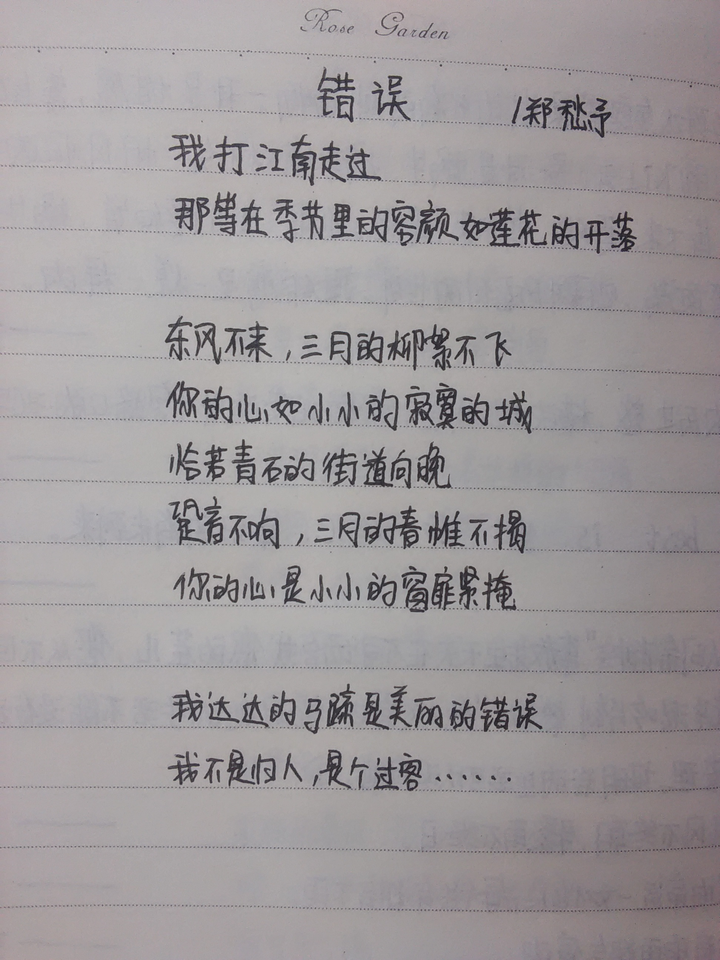 Rose Garden
错误 /郑愁予
我打江南走过
那等在季节里的容颜如莲花的开落
东风不来，三月的柳絮不飞
你的心如小小的寂寞的城
恰若青石的街道向晚
跫音不响，三月的春帷不揭
你的心是小小的窗扉紧掩
我达达的马蹄是美丽的错误
我不是归人，是个过客······